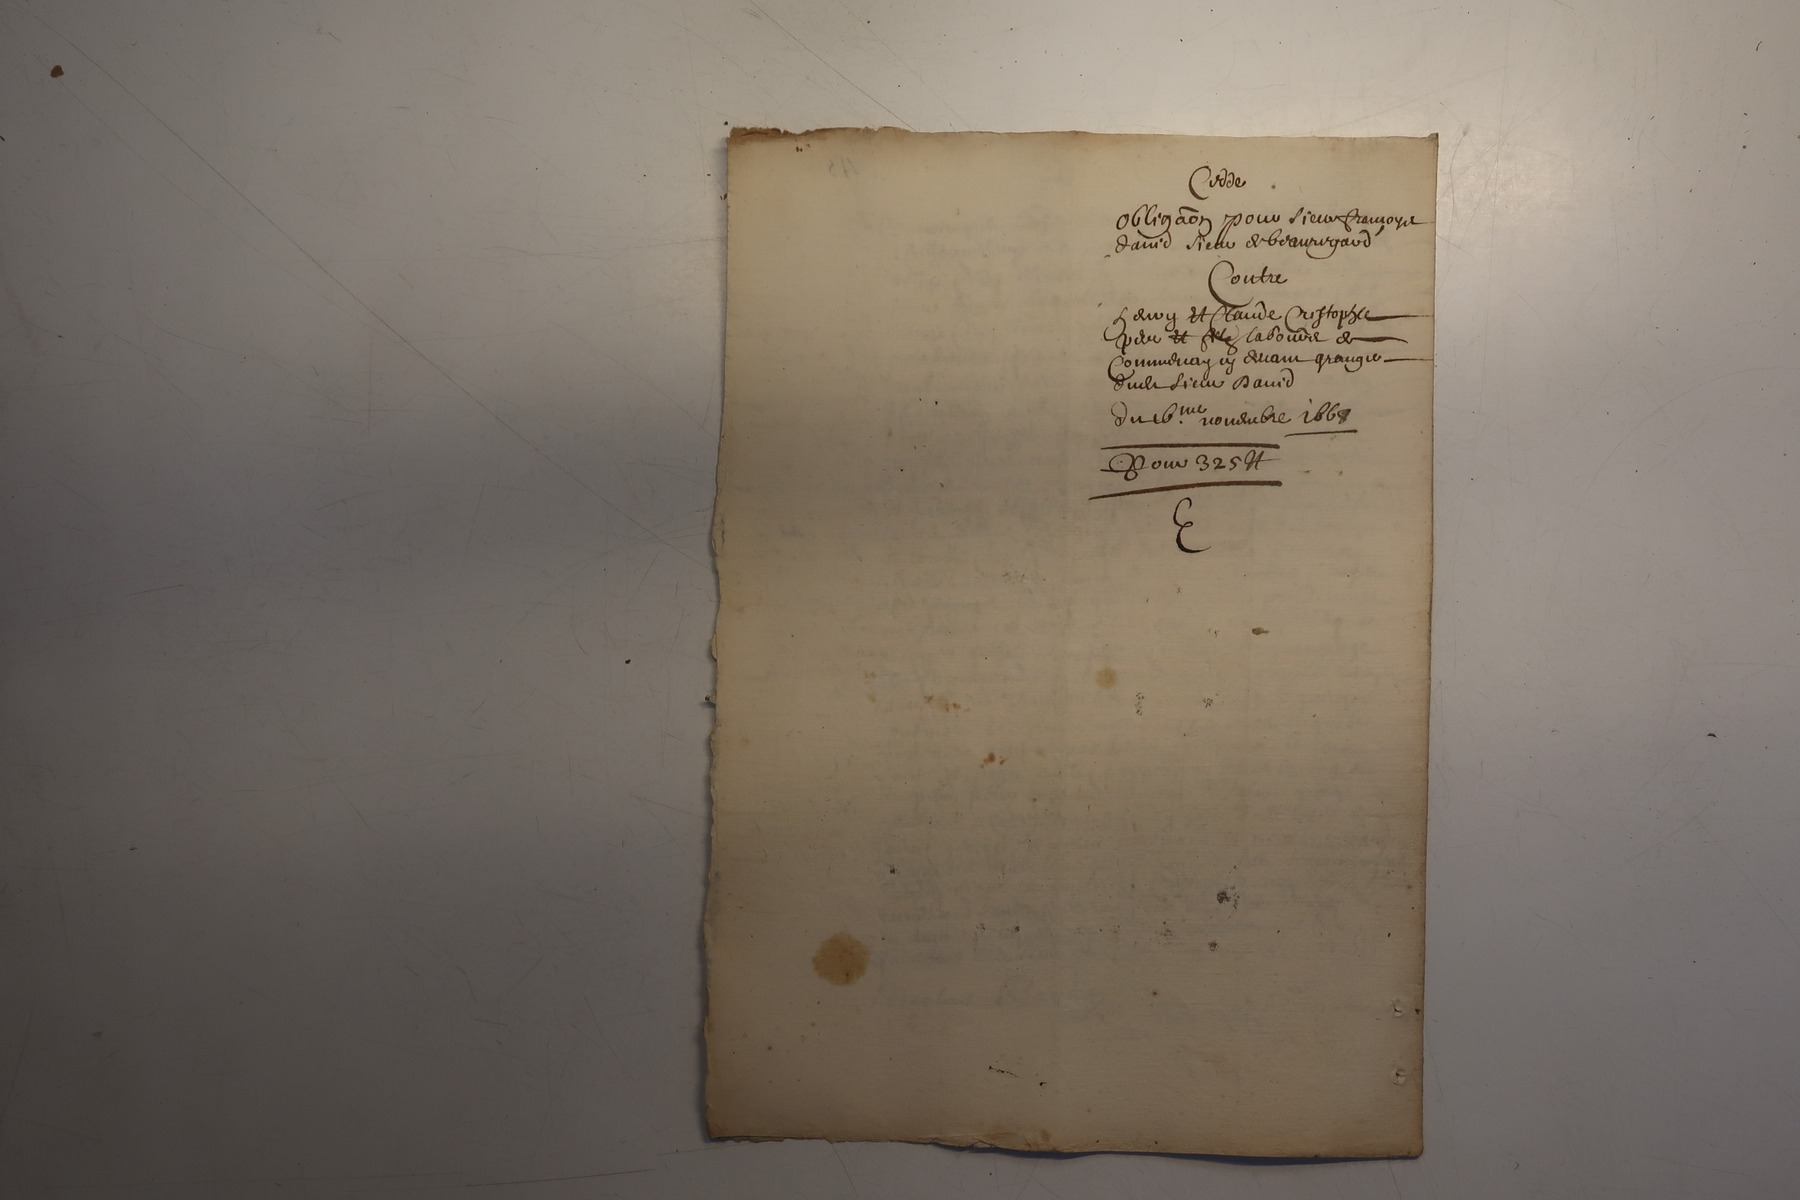 Cedde
obligaõn pour sieur françoys
david sieur de beauregard
Contre
henry et Claude Cristophle
pere et filz laboure de
Commenay et devant granger
dudt sieur David
du 16.me novembre 1668
Pour 325 tt
E